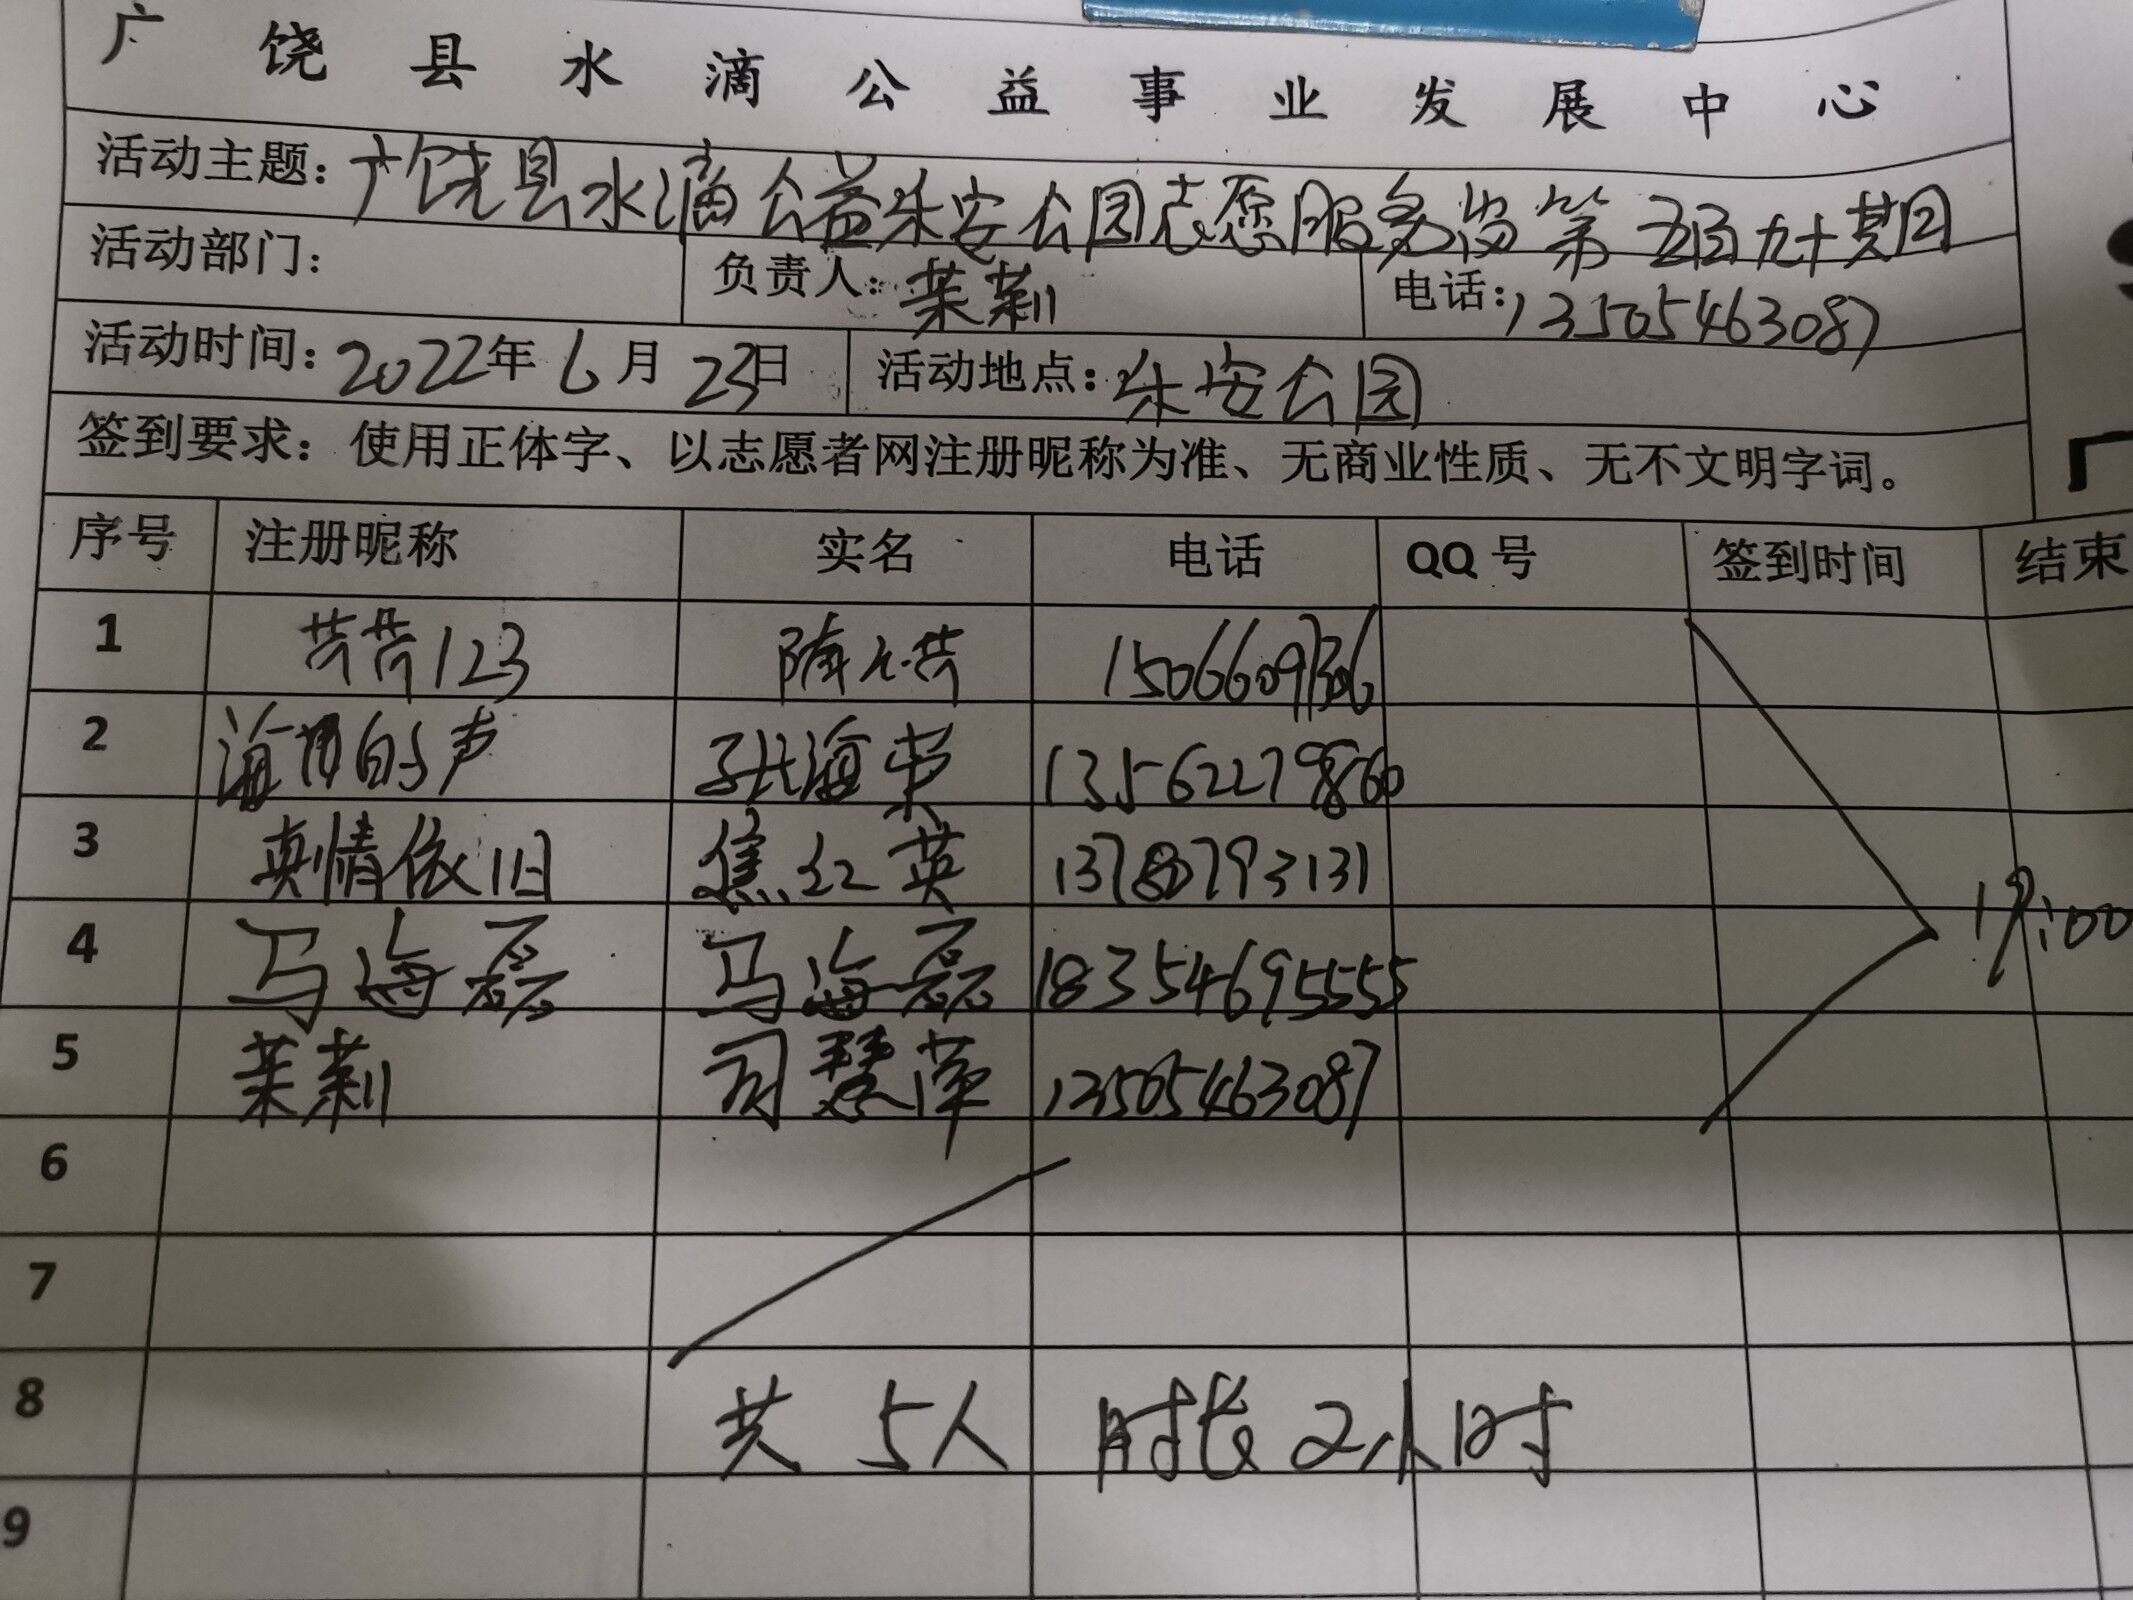 广饶县水滴公益事业发展中心
活动主题：广饶县水滴公益乐安公园志愿服务岗第五百九十期
活动部门： 负责人：茉莉 电话：13505463087
活动时间：2022年6月23日 活动地点：乐安公园
签到要求：使用正体字、以志愿者网注册昵称为准、无商业性质、无不文明字词。
序号 注册昵称 实名 电话 QQ号 签到时间 结束
1 芳芳123 15066091306
2 的声 张海荣 13562279860
3 真情依旧 焦红英 13780793131
4 马海磊 马海磊 18354695555 19:00
5 茉莉 司慧萍 13505463087
6
7
8 共5人 时长2小时
9